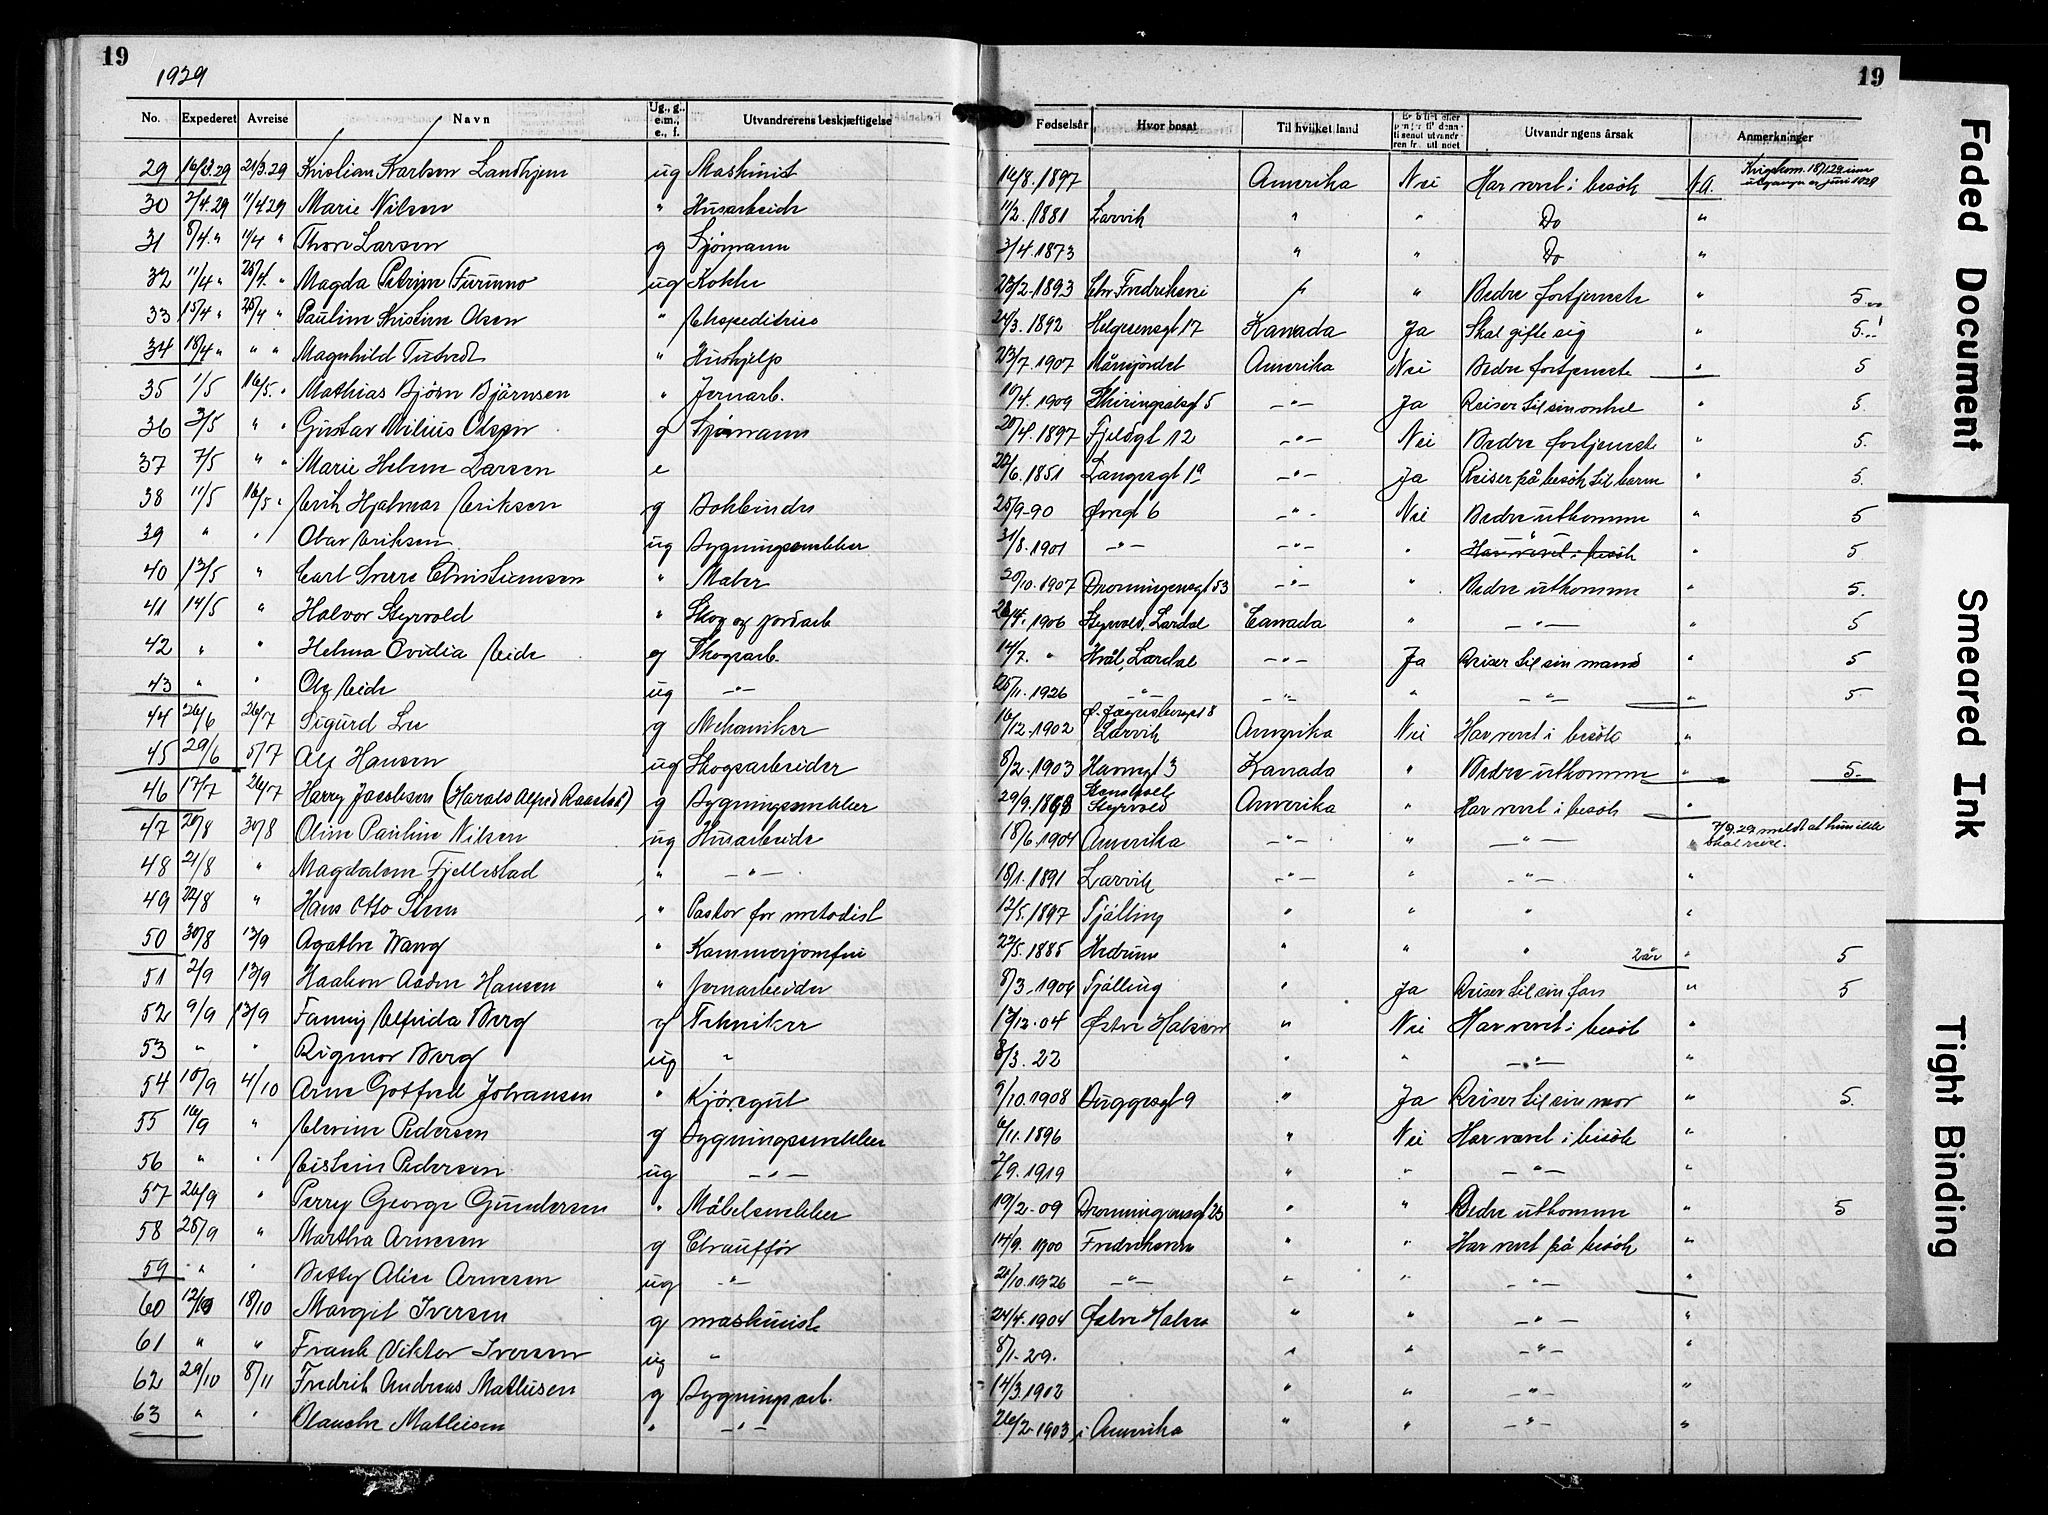 19
1929
19
No. Expederet Avreise Navn Ug., g., e.m., e., f. Utvandrerens beskjæftigelse Fødselsår Hvor bosat Til hvilket land Utvandringens årsak Anmerkninger
29 16/3.29 21/3.29 Kristian Karlsen Landhjem ug Maskinist 16/8.1897 Amerika Nei Har veret i besök N.a.
30 2/4.29 11/4 29 Marie Nilsen " Husarbeide 11/2.1881 Larvik " " Do "
31 8/4 " 11/4 " Thora Larsen g Sjömann 3/4.1873 " " Do "
32 11/4 " 25/4. " Magda Petrine Furumo ug Kokke 23/2.1893 Chr Fredriksvei " " Bedre fortjeneste " 5
33 15/4 " 25/4 " Pauline Kristine Olsen " Ekspeditrice 24/3.1892 Helgesensgt 17 Kanada Ja Skal gifte sig " 5
34 18/4 " " " Magnhild Tutvedt " Hushjelp 23/7.1907 Månejordet Amerika Nei Bedre fortjeneste " 5
35 1/5 16/5. " Mathias Bjørn Bjørnsen " Jernarb. 10/4.1909 Skiringsalsgt 5 -"- Ja Reiser til sin onkel " 5.
36 3/5 " " Gustav Milius Olsen g Sjömann 20/4.1897 Fjeldgt 12 -"- Nei Bedre fortjeneste " 5.
37 7/5 " " Marie Helene Larsen e 22/6.1851 Langesgt 1a -"- Ja Reiser på besök til barn " 5.
38 11/5 16/5 " Erik Hjalmar Eriksen g Bokbinder 25/9-90 Øvregt 6 -"- Nei Bedre utkomme " 5
39 " " Olav Eriksen ug Bygningssnekker 31/8.1901 -"- -"- " Har veret i besök " 5
40 13/5 " Carl Sverre Christiansen " Maler 20/10.1907 Dronningensgt 53 -"- " Bedre utkomme " 5.
41 14/5 " Halvor Styrvold " Skog og jordarb 26/4.1906 Styrvold, Lardal Canada " -"- " 5
42 " " Helma Ovidia Eide g Skogsarb. 14/7. " Hvål, Lardal -"- Ja Reiser til sin mand " 5
43 " " Olg Eide ug -"- 25/11.1926 " -"- " -"- " 5
44 26/6 26/7 Sigurd Lie g Mekaniker 16/12.1902 Larvik Amerika Nei Har veret i besök "
45 29/6 5/7 Alf Hansen ug Skogsarbeider 8/2.1903 Havnegt 3 Kanada " Bedre utkomme " 5.
46 17/7 26/7 Harry Jacobsen (Harald Alfred Raastad) g Bygningssnekker 29/9.1898 Styrvold Amerika " Har veret i besök "
47 20/8 30/8 Oline Pauline Nilsen ug Husarbeide 18/6.1904 Amerika -"- " -"- " 7/9.29 meldt at hun ikke skal reise.
48 21/8 " Magdalene Fjellestad " -"- 18/1.1891 Larvik -"- " -"- "
49 22/8 " Hans Otto Steen " Pastor for metodist 12/5.1897 Tjölling " " " "
50 30/8 13/9 Agathe Wang " Kammerjomfru 22/5.1885 Hedrum " " " 2 år " 5
51 2/9 13/9 Haakon Aadne Hansen " Jernarbeider 8/3.1906 Tjölling " Ja Reiser til sin far " 5
52 9/9 13/9 Fanny Alfrida Berg g Tekniker 17/12-04 Østre Halsen " Nei Har veret i besök "
53 " " Rigmor Berg ug " 8/3.22 " " -"- "
54 10/9 4/10 Arne Gotfred Johansen " Kjöregut 9/10.1908 Buggesgt 9 " Ja Reiser til sin mor " 5.
55 16/9 " Elvine Pedersen g Bygningssnekker 6/11.1896 " Nei Har veret i besök "
56 " " Eistein Pedersen ug -"- 2/9.1919 " " -"- "
57 26/9 " Perrey George Gundersen " Möbelsnekker 19/2-09 Dronningensgt 23 " " Bedre utkomme " 5
58 28/9 " Martha Arnesen g Chrauffør 14/9.1900 Fredriksvern " " Har veret på besök "
59 " " Betty Alice Arnesen ug -"- 21/10.1926 -"- " " -"- "
60 12/10 18/10 Margit Iversen g maskiniste 24/4.1904 Østre Halsen " " -"- "
61 " " Frank Viktor Iversen ug " 8/1-29. " " -"- "
62 29/10 8/11 Fredrik Andreas Mathisen g Bygningsarb. 14/3.1902 " " -"- "
63 " " Blanche Mathisen " -"- 26/2-1903 i Amerika " " -"- "
Faded Document
Smeared Ink
Tight Binding